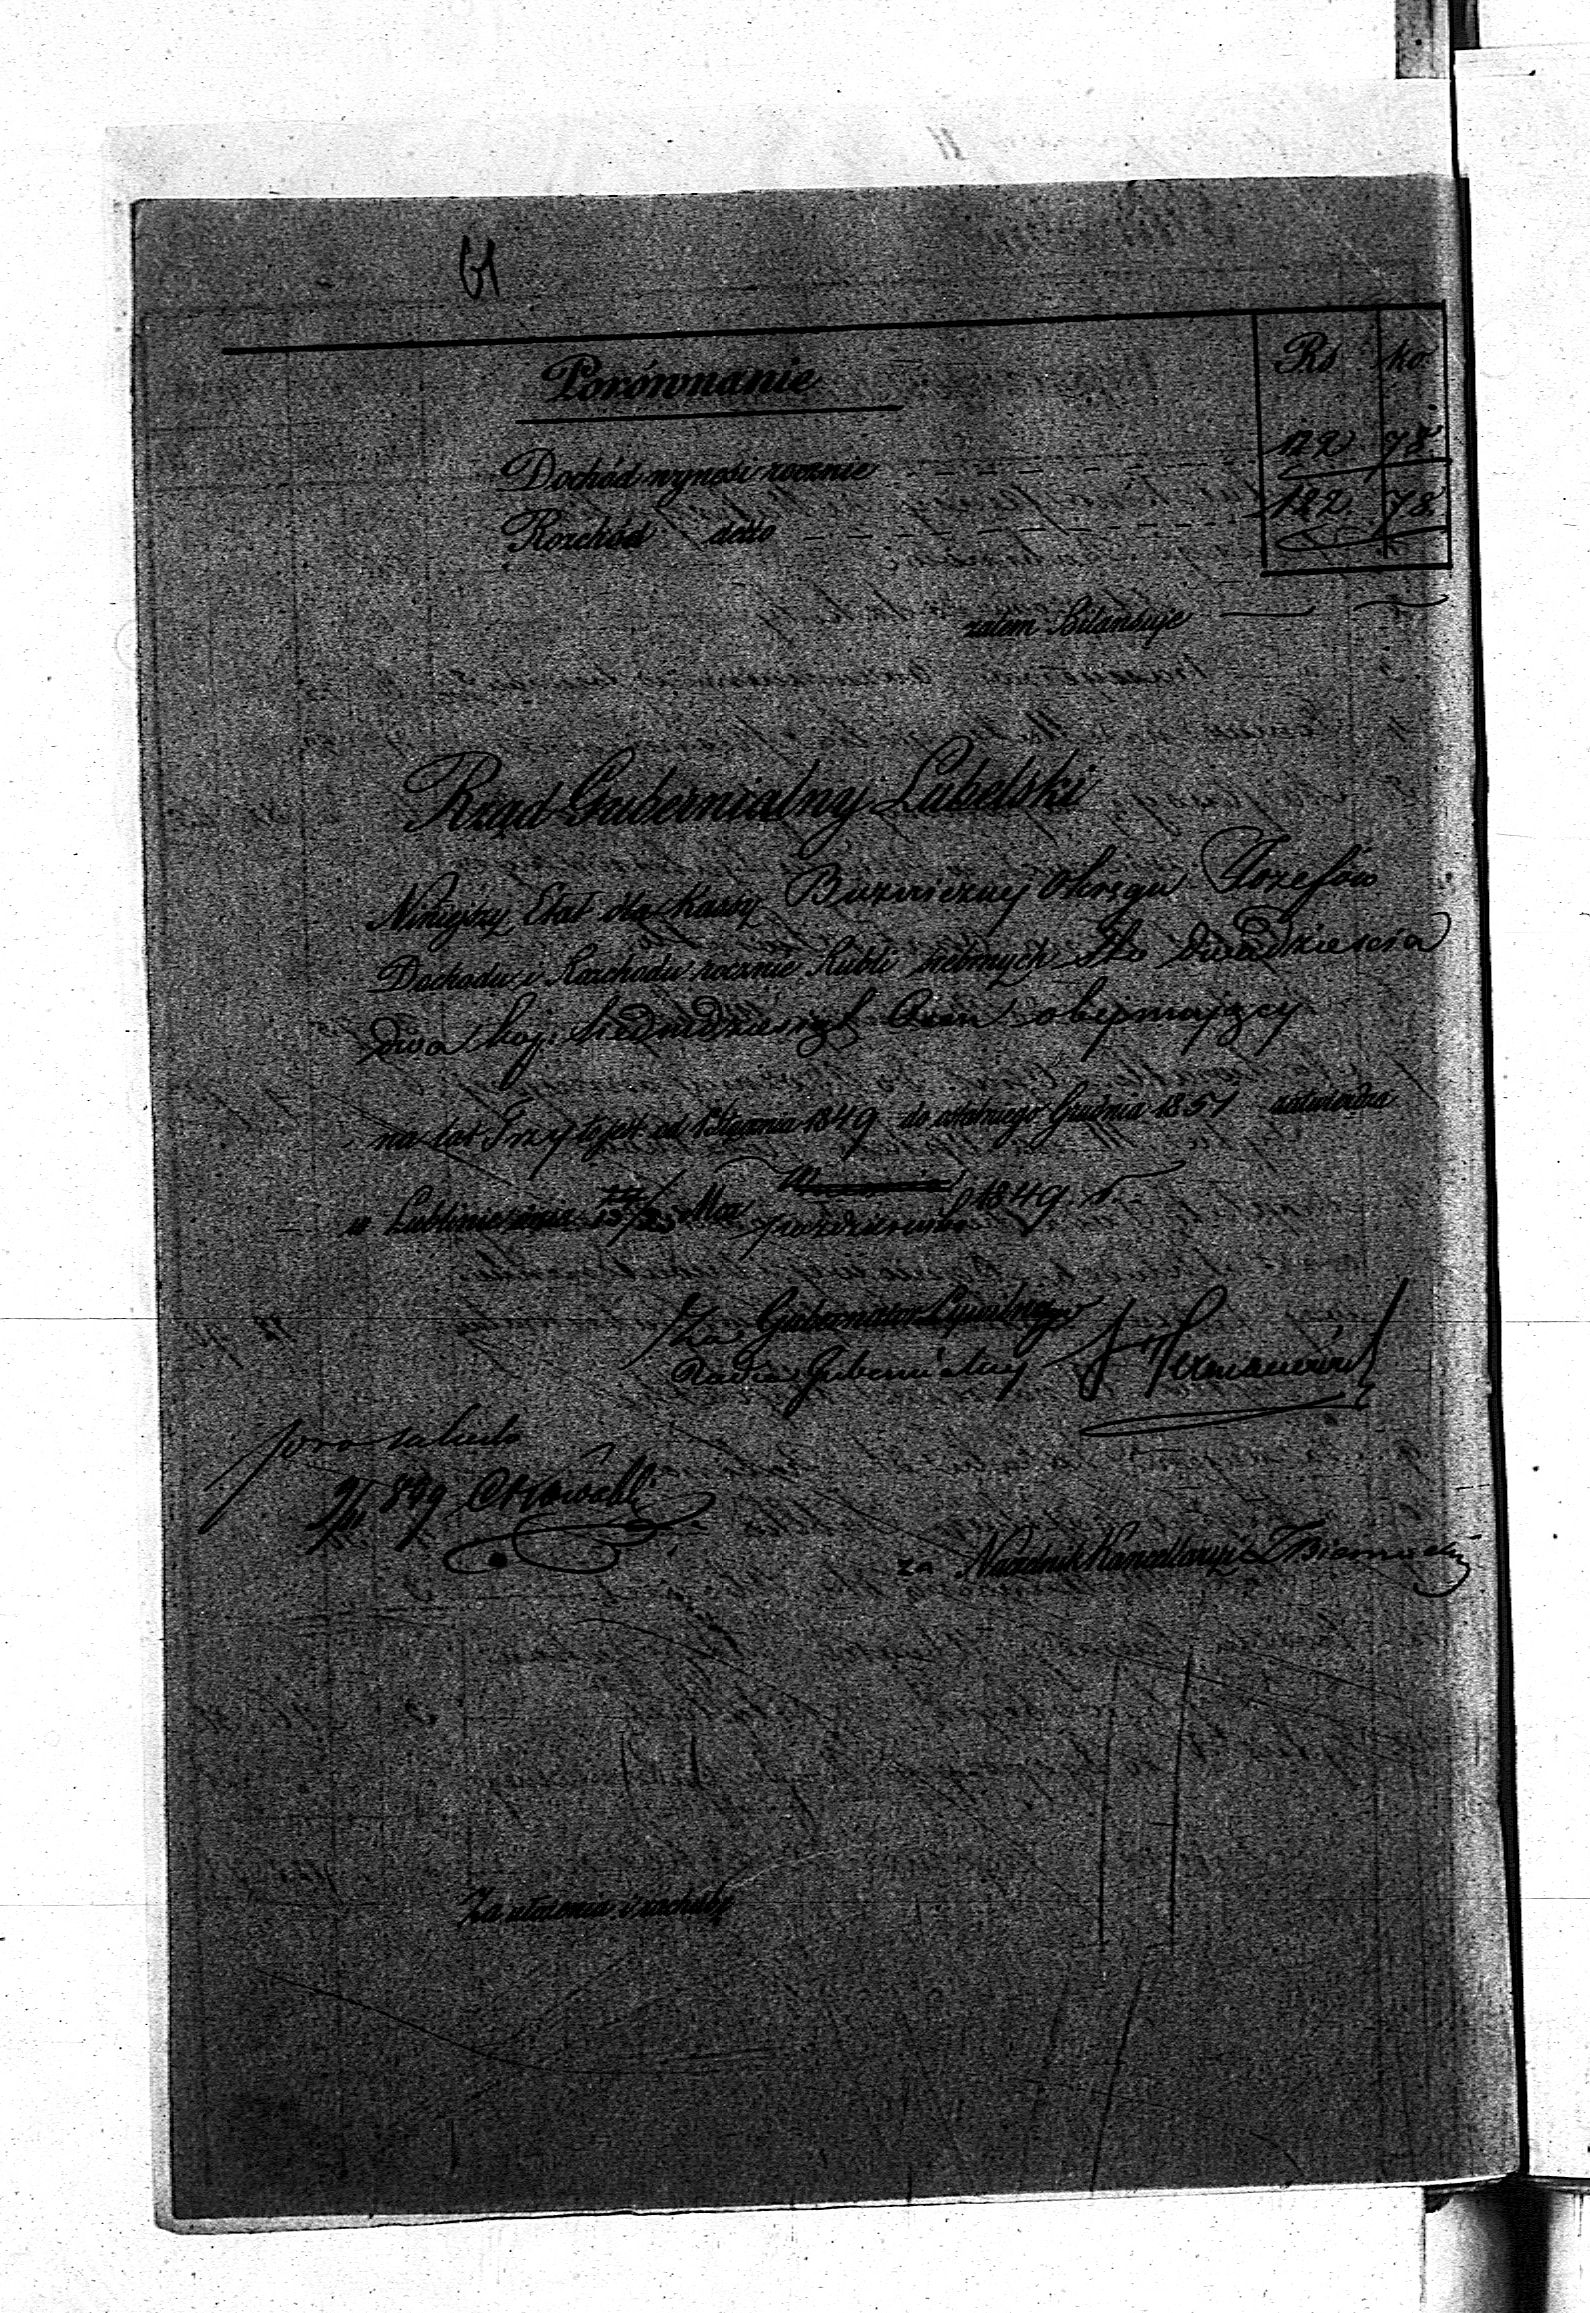 61
Porównanie
Rs ko
Dochód wynosi rocznie 122 78
Rozchód detto 122. 78
zatem Bilansuje
Rząd Gubernialny Lubelski
Niniejszy Etat dla Kassy Bożniczney Okręgu Jozefów
Dochodu i Rozchodu rocznie Rubli srebrnych Sto dwadzieścia
dwa kop. siedmdziesiąt ośm obejmujący
na lat Trzy to jest od 1 Stycznia 1849 do ostatniego Grudnia 1851 zatwierdza
w Lublinie dnia 13/25 Mca Października 1849 r.
za Gubernatora Cywilnego
Radca Gubernialny
849
za Naczelnik Kancellaryi
Za ułożenia i rachuby